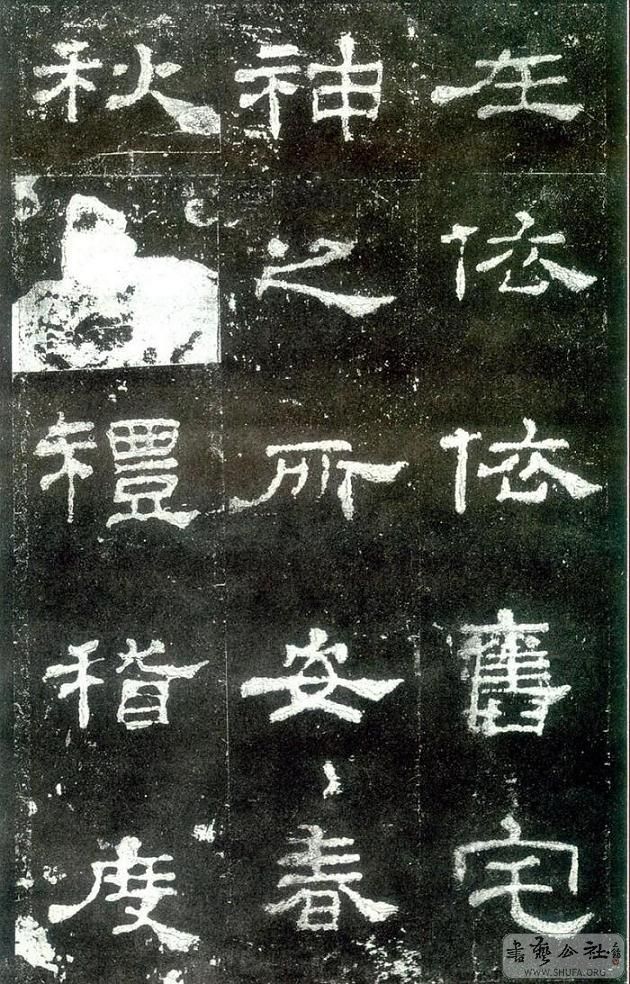 在依依舊宅
神之所安春
秋禮稽度
書藝公社
WWW.SHUFA.ORG